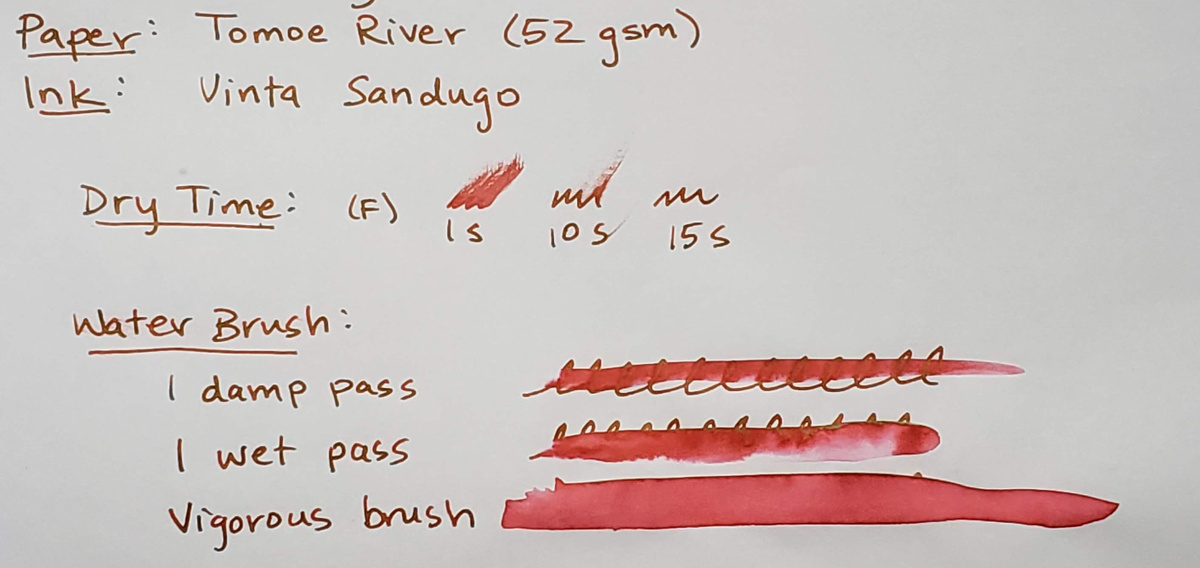 Paper: Tomoe River (52 gsm)
Ink: Vinta Sandugo
Dry Time: (F) 1s 10s 15s
Water Brush:
1 damp pass
1 wet pass
Vigorous brush